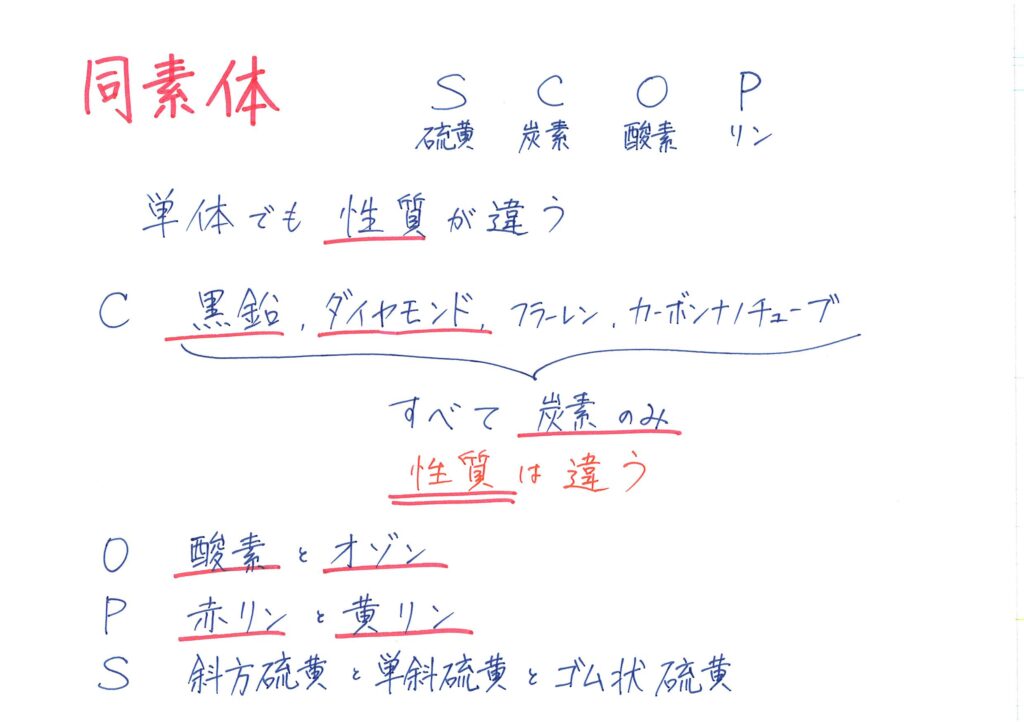 同素体
S C O P
硫黄 炭素 酸素 リン
単体でも 性質が違う
C 黒鉛, ダイヤモンド, フラーレン, カーボンナノチューブ
すべて 炭素のみ
性質は違う
O 酸素とオゾン
P 赤リンと黄リン
S 斜方硫黄と単斜硫黄とゴム状硫黄